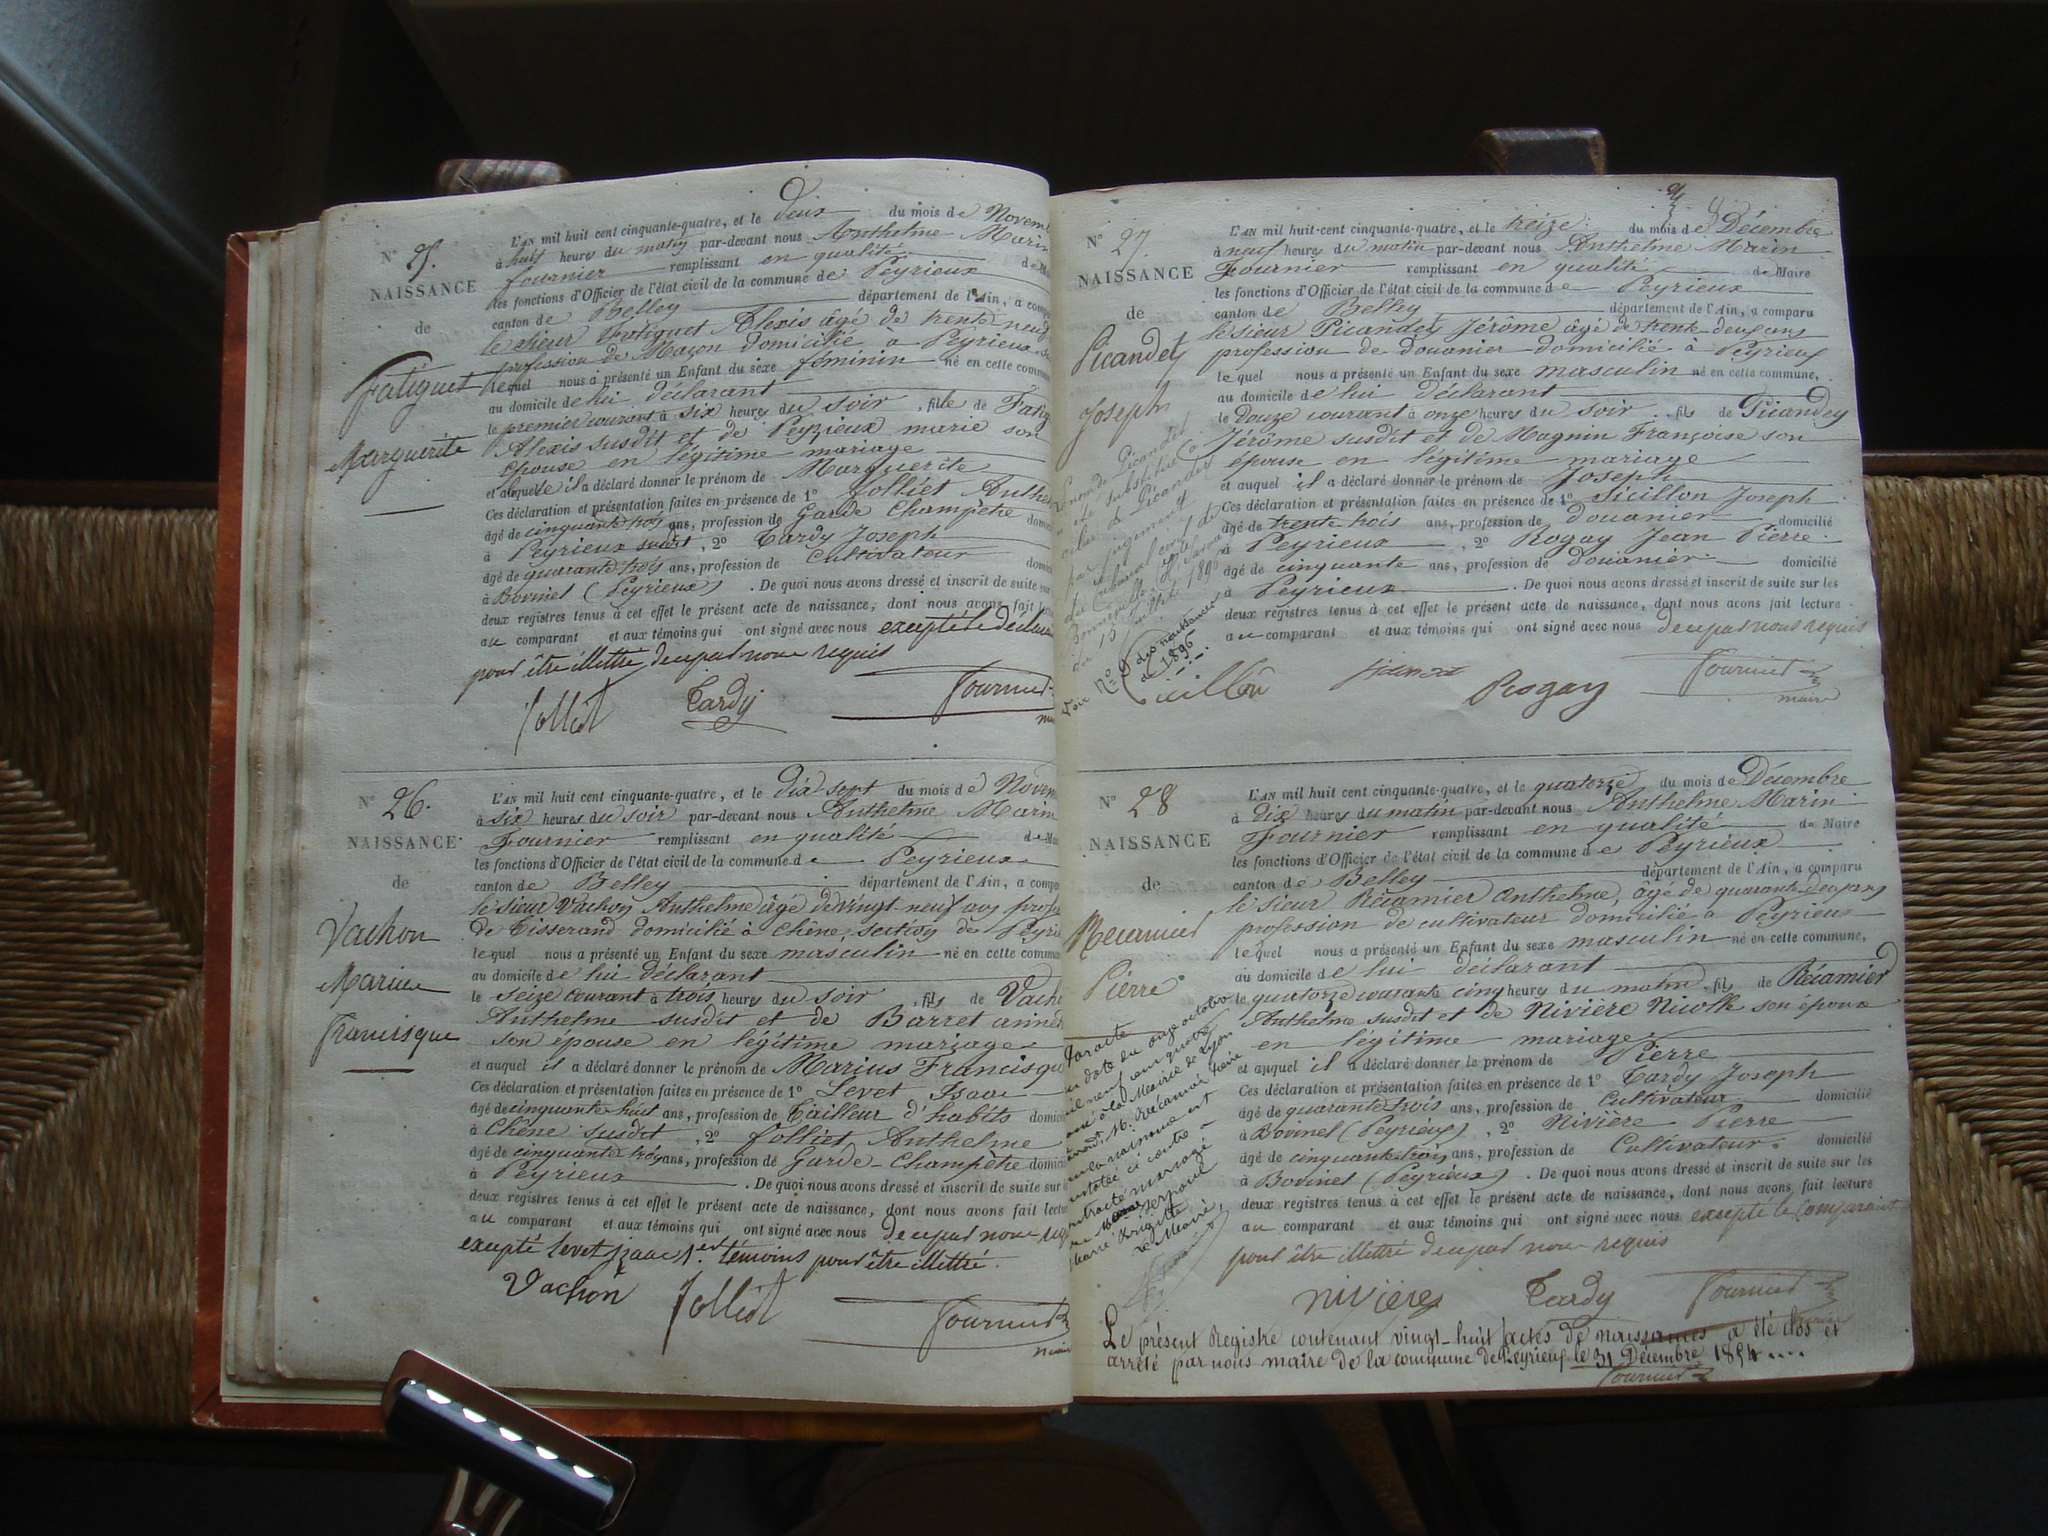 N° 25.
NAISSANCE
de
Fatiguet
Marguerite
L'AN mil huit cent cinquante-quatre, et le deux du mois de Novem
à huit heures du matin par-devant nous Anthelme Marin
fournier remplissant en qualité de Ma
les fonctions d'Officier de l'état civil de la commune de Peyrieux
canton de Belley département de l'Ain, a compa
le sieur Fatiguet Alexis âgé de trente neuf
profession de Maçon domicilié à Peyrieux
lequel nous a présenté un Enfant du sexe féminin né en cette commune
au domicile de lui déclarant
le premier courant à six heures du soir, fille de Fatig
Alexis susdit et de Peyzieux marie son
épouse en légitime mariage
et à laquelle il a déclaré donner le prénom de Marguerite
Ces déclaration et présentation faites en présence de 1° Jolliet Anthel
âgé de cinquante trois ans, profession de Garde Champêtre domi
à Peyrieux susdit, 2° Tardy Joseph
âgé de quarante trois ans, profession de Cultivateur domi
à Bovinel (Peyrieux). De quoi nous avons dressé et inscrit de suite sur
deux registres tenus à cet effet le présent acte de naissance, dont nous avons fait lec
au comparant et aux témoins qui ont signé avec nous excepté le déclara
pour être illettré de ce par nous requis
Jolliet Tardy Fournier
N° 26.
NAISSANCE
de
Vachon
Marius
Francisque
L'AN mil huit cent cinquante-quatre, et le dix sept du mois de Novem
à six heures du soir par-devant nous Anthelme Marin
Fournier remplissant en qualité de Ma
les fonctions d'Officier de l'état civil de la commune de Peyrieux
canton de Belley département de l'Ain, a compa
le sieur Vachon Anthelme âgé de vingt-neuf ans profes
de Tisserand domicilié à Chêne, section de Peyrie
lequel nous a présenté un Enfant du sexe masculin né en cette commun
au domicile de lui déclarant
le seize courant à trois heures du soir, fils de Vach
Anthelme susdit et de Barret
son épouse en légitime mariage
et auquel il a déclaré donner le prénom de Marius Francisqu
Ces déclaration et présentation faites en présence de 1° Levet Isaac
âgé de cinquante huit ans, profession de Tailleur d'habits domici
à Chêne susdit, 2° Jolliet Anthelme
âgé de cinquante trois ans, profession de Garde-Champêtre domici
à Peyrieux. De quoi nous avons dressé et inscrit de suite sur l
deux registres tenus à cet effet le présent acte de naissance, dont nous avons fait lectu
au comparant et aux témoins qui ont signé avec nous de ce par nous req
excepté Levet Isaac 1er témoins pour être illettré.
Vachon Jolliet Fournier
N° 27.
NAISSANCE
de
Picandet
Joseph
Le nom de Picandet
a été substitué à
celui de Picandey
par jugement
du tribunal civil de
Bonneville Hte Savoie
du 15 1896
Voir N° 9 des naissances
de 1896
L'AN mil huit-cent cinquante-quatre, et le treize du mois de Décembre
à neuf heures du matin par-devant nous Anthelme Marin
Fournier remplissant en qualité de Maire
les fonctions d'Officier de l'état civil de la commune de Peyrieux
canton de Belley département de l'Ain, a comparu
le sieur Picandet Jérôme âgé de trente-deux ans
profession de douanier domicilié à Peyrieux
lequel nous a présenté un Enfant du sexe masculin né en cette commune,
au domicile de lui déclarant
le Douze courant à onze heures du soir, fils de Picandey
Jérôme susdit et de Magnin Françoise son
épouse en légitime mariage
et auquel il a déclaré donner le prénom de Joseph
Ces déclaration et présentation faites en présence de 1° Sicillon Joseph
âgé de trente trois ans, profession de douanier domicilié
à Peyrieux, 2° Rogay Jean Pierre
âgé de cinquante ans, profession de douanier domicilié
à Peyrieux. De quoi nous avons dressé et inscrit de suite sur les
deux registres tenus à cet effet le présent acte de naissance, dont nous avons fait lecture
au comparant et aux témoins qui ont signé avec nous de ce par nous requis
Rogay Fournier
maire
N° 28
NAISSANCE
de
Récamier
Pierre
L'AN mil huit cent cinquante-quatre, et le quatorze du mois de Décembre
à dix heures du matin par-devant nous Anthelme Marin
Fournier remplissant en qualité de Maire
les fonctions d'Officier de l'état civil de la commune de Peyrieux
canton de Belley département de l'Ain, a comparu
le sieur Récamier Anthelme, âgé de quarante-deux ans
profession de cultivateur domicilié à Peyrieux
lequel nous a présenté un Enfant du sexe masculin né en cette commune,
au domicile de lui déclarant
le quatorze courant à cinq heures du matin, fils de Récamier
Anthelme susdit et de Nivière Nicolle son épouse
en légitime mariage
et auquel il a déclaré donner le prénom de Pierre
Ces déclaration et présentation faites en présence de 1° Tardy Joseph
âgé de quarante trois ans, profession de Cultivateur domicilié
à Bovinel (Peyrieux), 2° Nivière Pierre
âgé de cinquante trois ans, profession de Cultivateur domicilié
à Bovinel (Peyrieux). De quoi nous avons dressé et inscrit de suite sur les
deux registres tenus à cet effet le présent acte de naissance, dont nous avons fait lecture
au comparant et aux témoins qui ont signé avec nous excepté le Comparant
pour être illettré de ce par nous requis
Par acte
en date du onze octobre
mil neuf cent quatre
à la Mairie de Lyon
M. Récamier Pierre
dont la naissance est
constatée ci contre
contracté mariage
Le Maire
nivieres Tardy Fournier
Le présent Registre contenant vingt-huit actes de naissances a été clos et
arrêté par nous maire de la commune de Peyrieux le 31 Décembre 1854....
Fournier